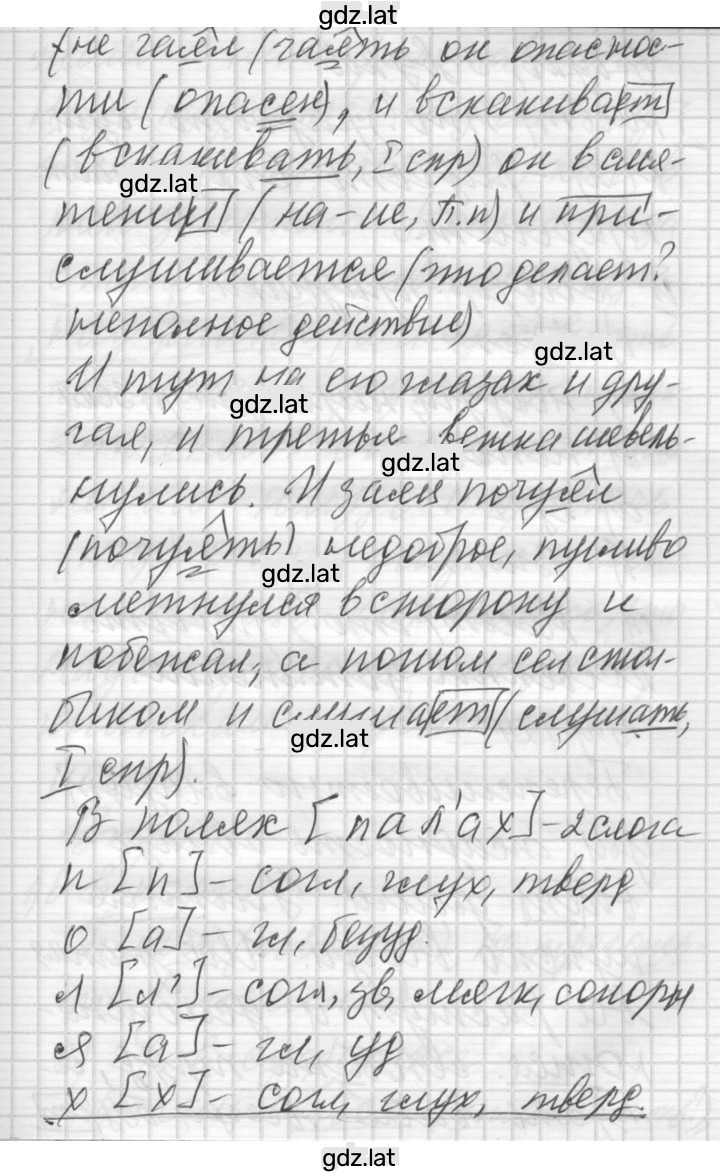 gdz.lat
(не гаял (чаять он опаснос-
ти (опасен), и вскакивает
(вскакивать, I спр) он в смя-
gdz.lat
тении (на -ие, П.п) и при-
слушивается (что делает?
неполное действие)
gdz.lat
И тут на его глазах и дру-
gdz.lat
гая, и третья ветка шевель-
gdz.lat
нулись. И заяц почуял
(почуять) недоброе, пугливо
gdz.lat
метнулся в сторону и
побежал, а потом сел стол-
биком и слушает (слушать,
gdz.lat
I спр).
В полях [пал'ах] - 2 слога
п [п] - согл, глух, тверд
о [а] - гл, безуд.
л [л'] - согл, зв, мягк, сонорн
я [а] - гл, уд
х [х] - согл, глух, тверд.
gdz.lat